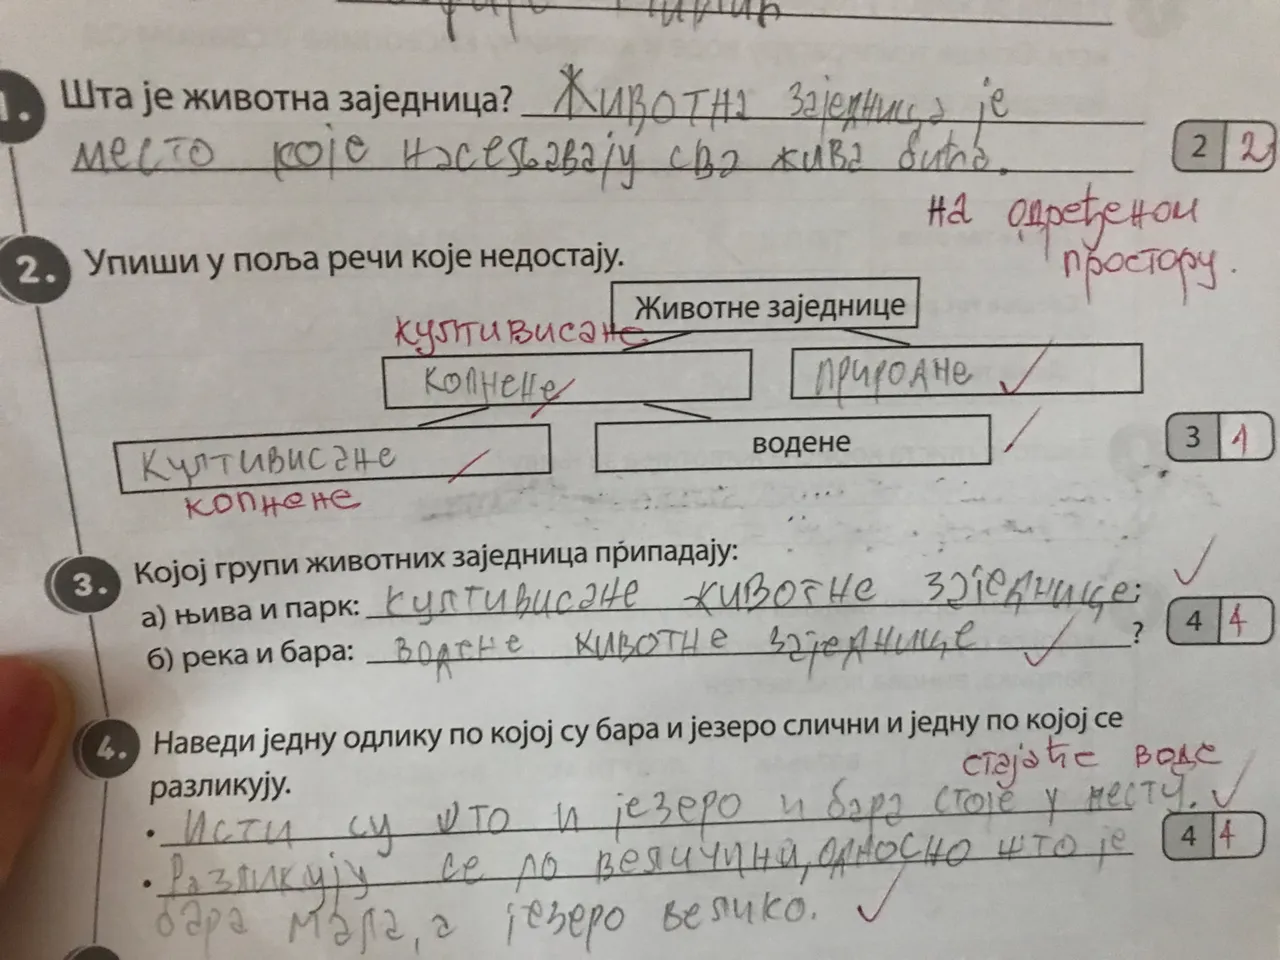 1. Шта је животна заједница? Животна заједница је
место које насељавају сва жива бића.
2 2
на одређеном
простору.
2. Упиши у поља речи које недостају.
Животне заједнице
култивисане
копнене
природне
култивисане
водене
3 1
копнене
3. Којој групи животних заједница припадају:
а) њива и парк: култивисане животне заједнице;
4 4
б) река и бара: водене животне заједнице ?
4. Наведи једну одлику по којој су бара и језеро слични и једну по којој се
разликују.
стајаће воде
• Исти су што и језеро и бара стоје у месту.
4 4
• Разликују се по величини, односно што је
бара мала, а језеро велико.